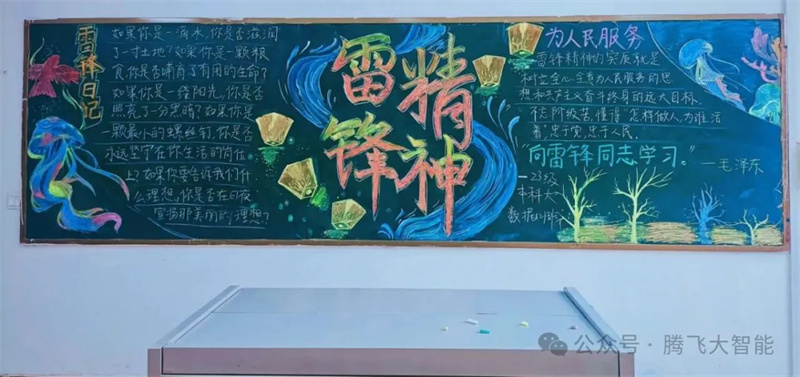 雷锋日记
如果你是一滴水,你是否滋润
了一寸土地?如果你是一颗粮
食,你是否哺育了有用的生命?
如果你是一缕阳光,你是否
照亮了一分黑暗?如果你是
一颗最小的螺丝钉,你是否
永远坚守在你生活的岗位
上?如果你要告诉我们什
么理想,你是否在日夜
宣扬那美丽的理想?
雷锋
精神
为人民服务
雷锋精神的实质就是
树立全心全意为人民服务的思
想和共产主义奋斗终身的远大目标。
怎样做人,为谁活
着,忠于党,忠于人民。
“向雷锋同志学习。”
—毛泽东
—23级
本科大
数据1班
公众号·腾飞大智能